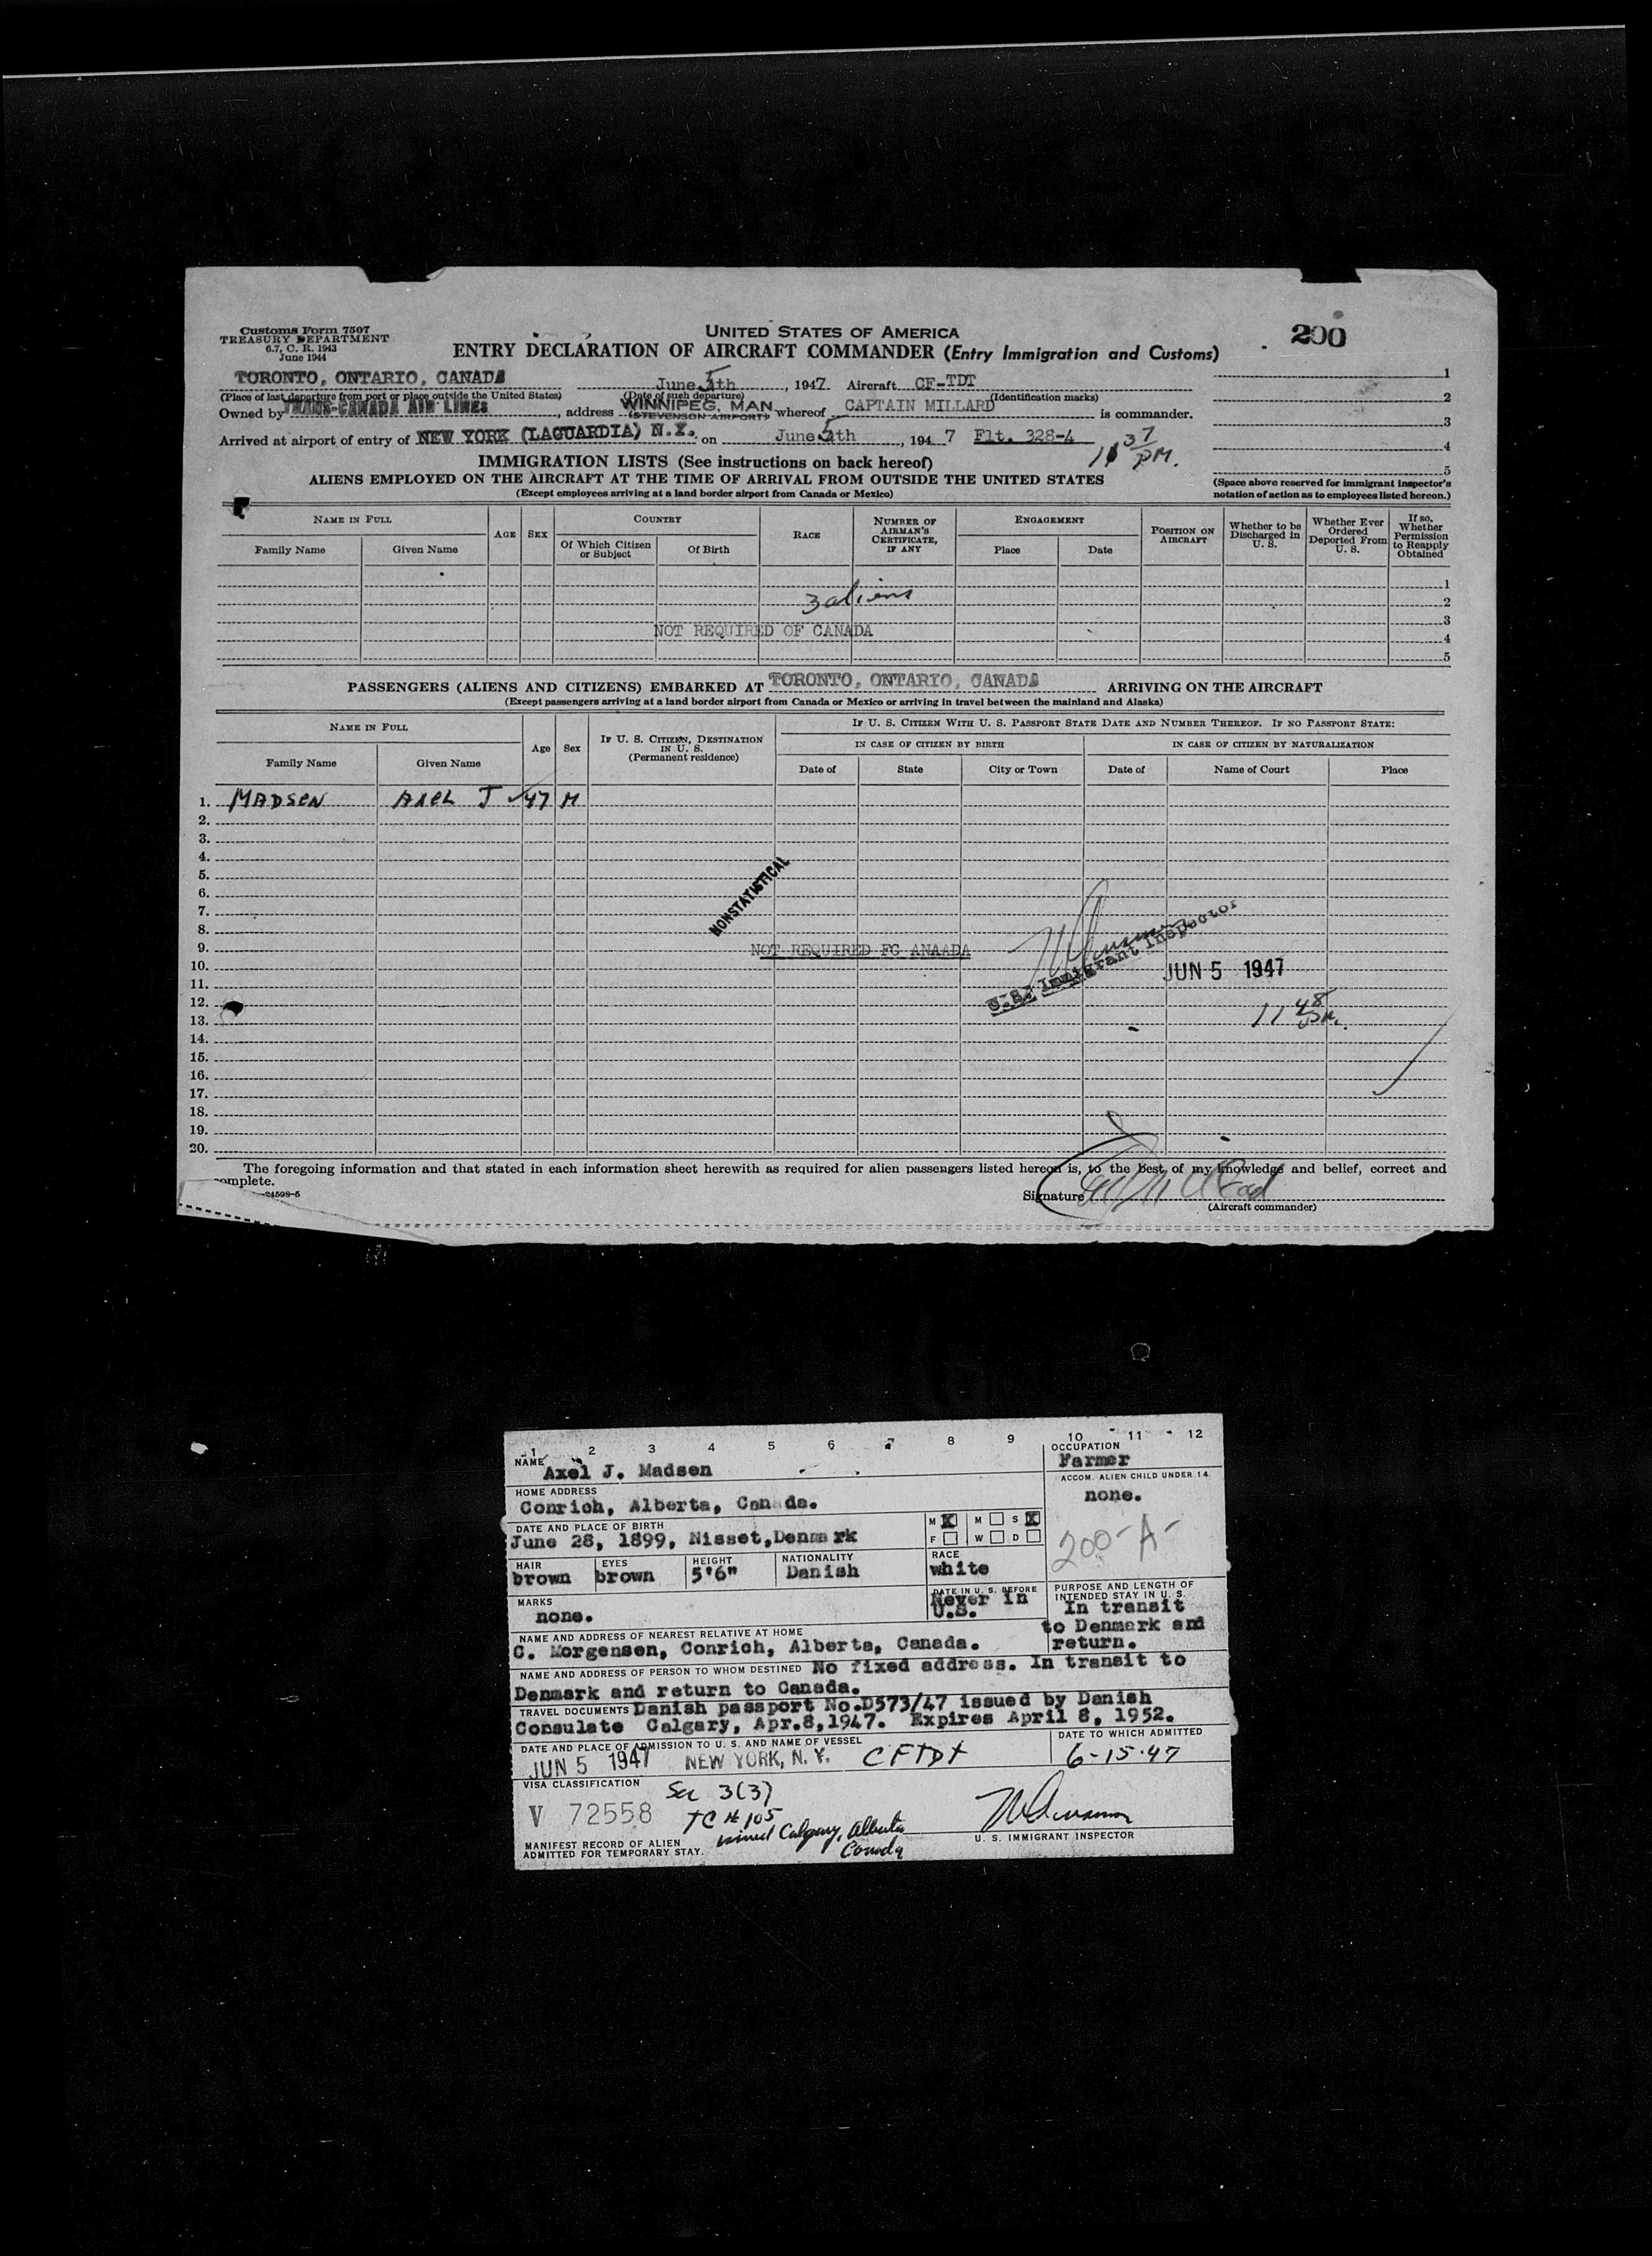 Customs Form 7507
TREASURY DEPARTMENT
6.7, C. R. 1943
June 1944
UNITED STATES OF AMERICA
200
ENTRY DECLARATION OF AIRCRAFT COMMANDER (Entry Immigration and Customs)
TORONTO, ONTARIO, CANADA June 5th, 1947 Aircraft CF-TDT
(Place of last departure from port or place outside the United States) (Date of such departure) (Identification marks)
Owned by TRANS-CANADA AIR LINES, address WINNIPEG, MAN (STEVENSON AIRPORT) whereof CAPTAIN MILLARD is commander.
Arrived at airport of entry of NEW YORK (LAGUARDIA) N.Y. on June 5th, 1947 Flt. 328-4
11 37 PM.
1
2
3
4
5
(Space above reserved for immigrant inspector's notation of action as to employees listed hereon.)
IMMIGRATION LISTS (See instructions on back hereof)
ALIENS EMPLOYED ON THE AIRCRAFT AT THE TIME OF ARRIVAL FROM OUTSIDE THE UNITED STATES
(Except employees arriving at a land border airport from Canada or Mexico)
NAME IN FULL AGE SEX COUNTRY RACE NUMBER OF AIRMAN'S CERTIFICATE, IF ANY ENGAGEMENT POSITION ON AIRCRAFT Whether to be Discharged in U. S. Whether Ever Ordered Deported From U. S. If so, Whether Permission to Reapply Obtained
Family Name Given Name Of Which Citizen or Subject Of Birth Place Date
1
3 aliens 2
3
NOT REQUIRED OF CANADA 4
5
PASSENGERS (ALIENS AND CITIZENS) EMBARKED AT TORONTO, ONTARIO, CANADA ARRIVING ON THE AIRCRAFT
(Except passengers arriving at a land border airport from Canada or Mexico or arriving in travel between the mainland and Alaska)
NAME IN FULL Age Sex IF U. S. CITIZEN, DESTINATION IN U. S. (Permanent residence) IF U. S. CITIZEN WITH U. S. PASSPORT STATE DATE AND NUMBER THEREOF. IF NO PASSPORT STATE:
IN CASE OF CITIZEN BY BIRTH IN CASE OF CITIZEN BY NATURALIZATION
Family Name Given Name Date of State City or Town Date of Name of Court Place
1. MADSEN AXEL J 47 M
2.
3.
4.
5.
6.
7.
NONSTATISTICAL
8.
9. NOT REQUIRED FG ANAADA
U.S. Immigrant Inspector
10. JUN 5 1947
11.
12.
13. 11 48 PM.
14.
15.
16.
17.
18.
19.
20.
The foregoing information and that stated in each information sheet herewith as required for alien passengers listed hereon is, to the best of my knowledge and belief, correct and
omplete.
-24598-5
Signature
(Aircraft commander)
1 2 3 4 5 6 7 8 9 10 11 12
NAME
Axel J. Madsen
OCCUPATION
Farmer
HOME ADDRESS
Conrich, Alberta, Canada.
ACCOM. ALIEN CHILD UNDER 14
none.
DATE AND PLACE OF BIRTH
June 28, 1899, Nisset, Denmark
M X M S X
F W D
200-A-
HAIR
brown
EYES
brown
HEIGHT
5'6"
NATIONALITY
Danish
RACE
white
MARKS
none.
DATE IN U. S. BEFORE
Never in U.S.
PURPOSE AND LENGTH OF INTENDED STAY IN U. S.
In transit to Denmark and return.
NAME AND ADDRESS OF NEAREST RELATIVE AT HOME
C. Morgensen, Conrich, Alberta, Canada.
NAME AND ADDRESS OF PERSON TO WHOM DESTINED No fixed address. In transit to
Denmark and return to Canada.
TRAVEL DOCUMENTS Danish passport No.D573/47 issued by Danish
Consulate Calgary, Apr.8,1947. Expires April 8, 1952.
DATE AND PLACE OF ADMISSION TO U. S. AND NAME OF VESSEL
JUN 5 1947 NEW YORK, N. Y. CFTDT
DATE TO WHICH ADMITTED
6-15-47
VISA CLASSIFICATION
Sec 3(3)
V 72558
TC # 105
issued Calgary, Alberta
Canada
MANIFEST RECORD OF ALIEN
ADMITTED FOR TEMPORARY STAY.
U. S. IMMIGRANT INSPECTOR